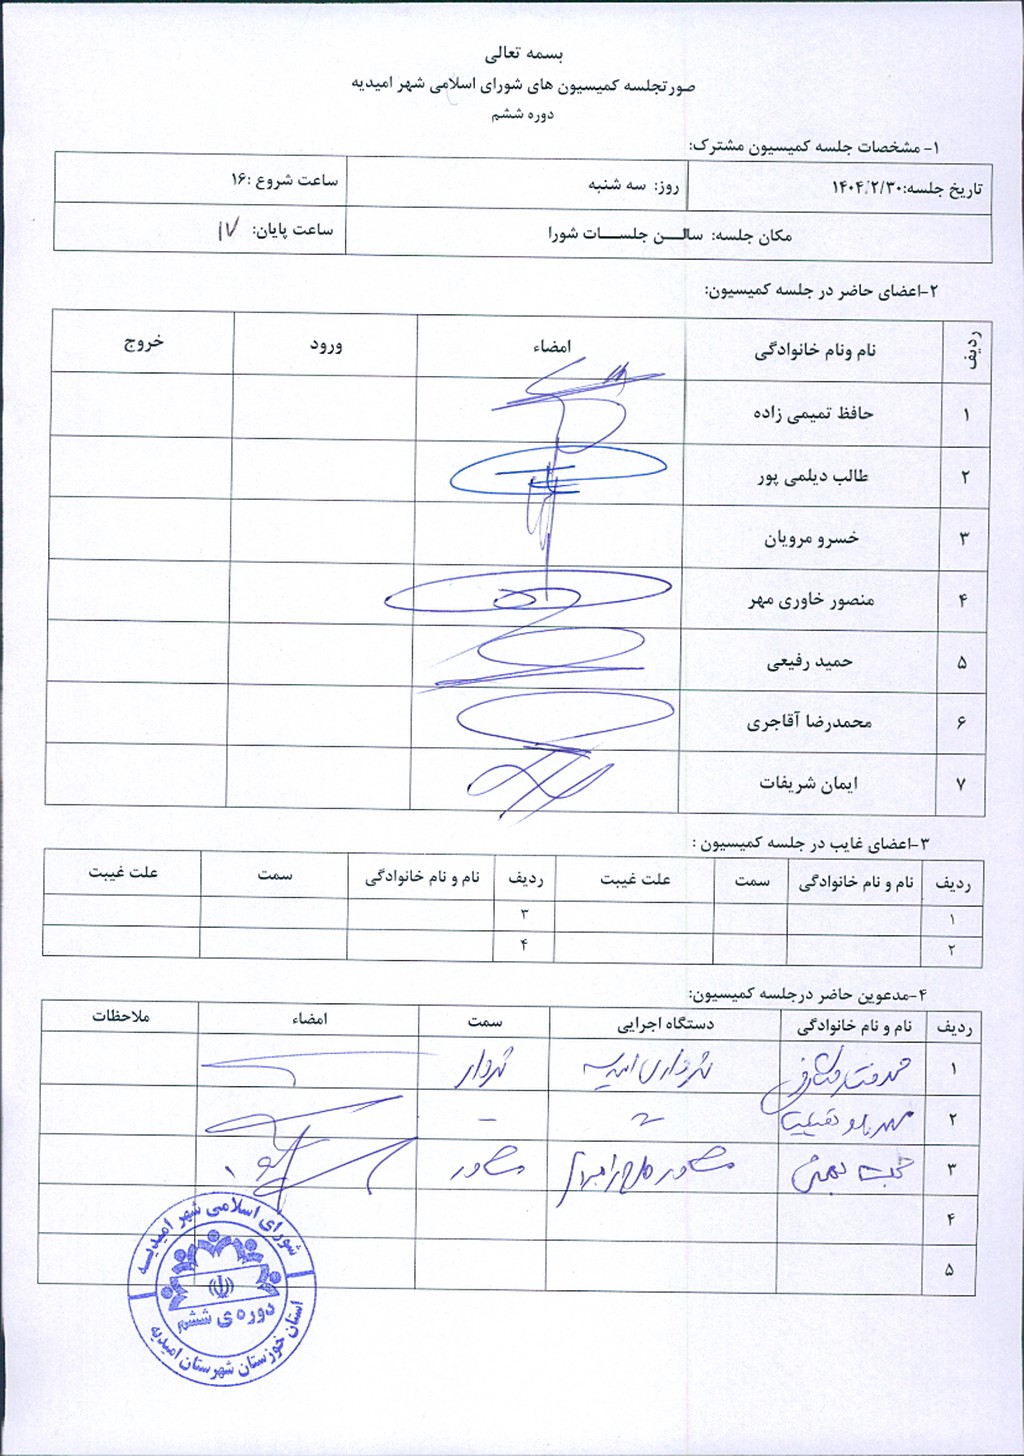 بسمه تعالی
صورتجلسه کمیسیون های شورای اسلامی شهر امیدیه
دوره ششم
۱- مشخصات جلسه کمیسیون مشترک:
تاریخ جلسه:۱۴۰۴/۲/۳۰ روز: سه شنبه ساعت شروع :۱۶
مکان جلسه: سالـــن جلســـات شورا ساعت پایان: ۱۷
۲-اعضای حاضر در جلسه کمیسیون:
ردیف نام ونام خانوادگی امضاء ورود خروج
۱ حافظ تمیمی زاده
۲ طالب دیلمی پور
۳ خسرو مرویان
۴ منصور خاوری مهر
۵ حمید رفیعی
۶ محمدرضا آقاجری
۷ ایمان شریفات
۳-اعضای غایب در جلسه کمیسیون :
ردیف نام و نام خانوادگی سمت علت غیبت ردیف نام و نام خانوادگی سمت علت غیبت
۱ ۳
۲ ۴
۴-مدعوین حاضر درجلسه کمیسیون:
ردیف نام و نام خانوادگی دستگاه اجرایی سمت امضاء ملاحظات
۱ شهرداری امیدیه شهردار
۲ -
۳ مشاور مشاور
۴
۵
شورای اسلامی شهر امیدیـــه
دوره ی ششم
استان خوزستان شهرستان امیدیه